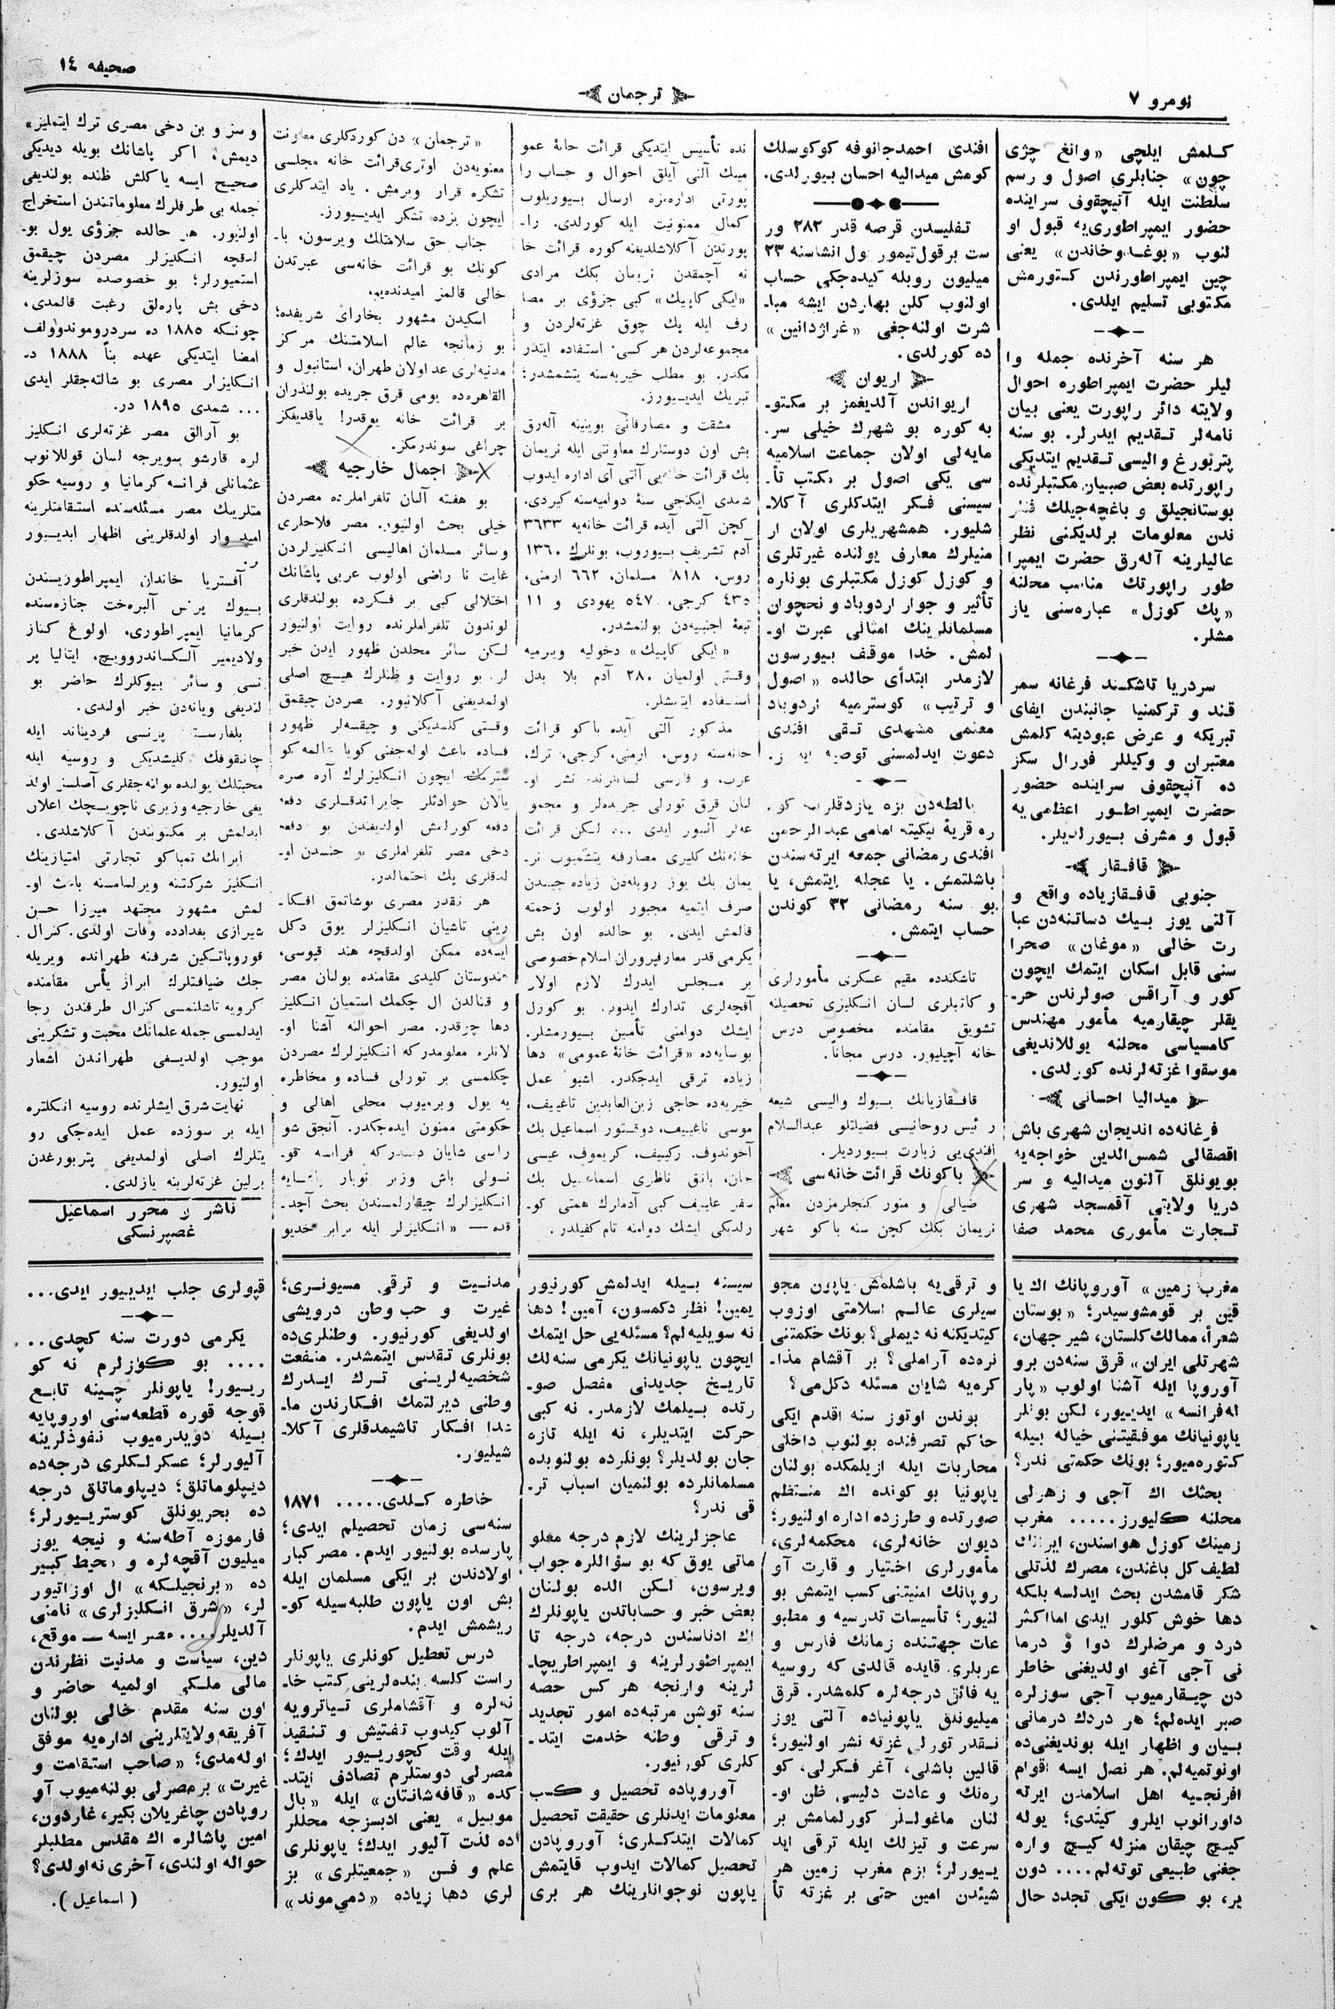 نومرو ٧
ترجمان
صحيفه ١٤
كلمش ايلچى «وانغ چژى
چون» جنابلرى اصول و رسم
سلطنت ايله آنيچقوف سراينده
حضور ايمپراطورى‌يه قبول او
لنوب «بوغدوخاندن» يعنى
چين ايمپراطورندن كتورمش
مكتوبى تسليم ايلدى.
هر سنه آخرنده جمله وا
ليلر حضرت ايمپراطوره احوال
ولايته دائر راپورت يعنى بيان
نامه‌لر تقديم ايدرلر. بو سنه
پتربورغ واليسى تقديم ايتديكى
راپورتده بعض صبيان مكتبلرنده
بوستانجيلق و باغچه‌جيلك
ندن معلومات برلديكنى نظر
عاليلرينه آله‌رق حضرت ايمپرا
طور راپورتك مناسب محلنه
«پك كوزل» عباره‌سنى ياز
مشلر.
سردريا تاشكند فرغانه سمر
قند و تركمنيا جانبندن ايفاى
تبريكه و عرض عبوديته كلمش
معتبران و وكيللر فورال سكز
ده آنيچقوف سراينده حضور
حضرت ايمپراطور اعظمى‌يه
قبول و مشرف بيورلديلر.
قافقار
جنوبى قافقازياده واقع و
آلتى يوز بيك دساتنه‌دن عبا
رت خالى «موغان» صحرا
سنى قابل اسكان ايتمك ايچون
كور و آراقس صولرندن حر-
يقلر چيقارميه مأمور مهندس
كامسياسى محلنه يوللانديغى
موسقوا غزته‌لرنده كورلدى.
ميداليا احسانى
فرغانه‌ده انديجان شهرى باش
اقصقالى شمس‌الدين خواجه‌يه
بويونلق آلتون ميداليه و سر
دريا ولايتى آقمسجد شهرى
تجارت مأمورى محمد صفا
افندى احمدجانوفه كوكوسلك
كومش ميداليه احسان بيورلدى.
تفليسدن قرصه قدر ٢٨٢ ور
ست برقول تيمور يول انشاسنه ٢٣
ميليون روبله كيده‌جكى حساب
اولنوب كلن بهاردن ايشه مبا-
شرت اولنه‌جغى «غراژدانين»
ده كورلدى.
اريوان
اريواندن آلديغمز بر مكتو-
به كوره بو شهرك خيلى سر.
مايه‌لى اولان جماعت اسلاميه
سى يكى اصول بر مكتب تأ-
سيسنى فكر ايتدكلرى آكلا-
شليور. همشهريلرى اولان ار
منيلرك معارف يولنده غيرتلرى
و كوزل كوزل مكتبلرى بونلره
تأثير و جوار اردوباد و نخچوان
مسلمانلرينك امثالى عبرت او-
لمش. خدا موفق بيورسون
لازمدر ابتدأى حالده «اصول
و ترتيب» كوسترميه اردوباد
معلمى مشهدى تقى افندى
دعوت ايدلمسنى توصيه
يالطه‌دن بزه يازدقلرينه كو-
ره قرية نيكيته امامى عبدالرحمن
افندى رمضانى جمعه ايرته‌سندن
باشلتمش. يا عجله ايتمش، يا
بو سنه رمضانى ٣٢ كوندن
حساب ايتمش.
تاشكنده مقيم عسكرى مأمورلرى
و كاتبلرى لسان انكليزى تحصيلنه
تشويق مقامنده مخصوص درس
خانه آچيليور. درس مجاناً.
قافقازيانك بيوك واليسى شيعه
رئيس روحانيسى فضيلتلو عبدالسلام
افندى‌يى زيارت بيورديلر.
باكونك قرائت خانه‌سى
ضيالى و منور كنجلرمزدن معلم
نريمان بكك كچن سنه باكو شهر
نده تأسيس ايتديكى قرائت خانهٔ عمو
مينك آلتى آيلق احوال و حساب را
پورتى اداره‌مزه ارسال بيوريلوب
كمال ممنونيت ايله كورلدى. را-
پورتدن آكلاشلديغنه كوره قرائت خا
نه آچمقدن نريمان بكك مرادى
«ايكى كاپيك» كبى جزؤى بر مصا
رف ايله پك چوق غزته‌لردن و
مجموعه‌لردن هر كسى استفاده ايتدر
مكدر. بو مطلب خيريه‌سنه يتشمشدر؛
تبريك ايديورز.
مشقت و مصارفاتى بوينينه آله‌رق
بش اون دوستارك معاونتى ايله نريمان
بك قرائت خانه‌يى آلتى آى اداره ايدوب
شمدى ايكنجى سنهٔ دواميه‌سنه كيردى.
كچن آلتى آيده قرائت خانه‌يه ٣٦٣٣
آدم تشريف بيوروب، بونلرك ١٣٦٠
روس، ٨١٨ مسلمان، ٦٦٢ ارمنى،
٤٣٥ كرجى، ٥٤٧ يهودى و ١١
تبعهٔ اجنبيه‌دن بولنمشدر.
«ايكى كاپيك» دخوليه ويرميه
وقتى اولميان ٢٨٠ آدم بلا بدل
استفاده ايتمشلر.
مذكور آلتى آيده باكو قرائت
خانه‌سنه روس، ارمنى، كرجى، ترك،
عرب، و فارسى لسانلرنده نشر او-
لنان قرق تورلى جريده‌لر و مجمو
عه‌لر آلنيور ايدى ... لكن قرائت
خانه‌نك كليرى مصارفه يتشميوب نر-
يمان بك يوز روبله‌دن زياده جيبندن
صرف ايتميه مجبور اولوب زحمته
قالمش ايدى. بو حالده اون بش
يكرمى قدر معارفپروران اسلام خصوصى
بر مجلس ايدرك لازم اولان
آقچه‌لرى تدارك ايدوب بو كوزل
ايشك دوامنى تأمين بيورمشلر.
بوسايه‌ده «قرائت خانهٔ عمومى» دها
زياده ترقى ايدجكدر. اشبو عمل
خيريه‌ده حاجى زين‌العابدين تاغييف،
موسى ناغييف، دوقتور اسماعيل بك
آخوندوف، ركبيف، كريموف، عيسى
خان، بانق ناظرى اسماعيل بك
سفر عليف كبى آدملرك همتى كو-
رلديكى ايشك دوامنه تام كفيلدر.
«ترجمان» دن كوردكلرى معاونت
معنويه‌دن اوترى قرائت خانه مجلسى
تشكره قرار ويرمش. ياد ايتدكلرى
ايچون بزده تشكر ايديورز.
جناب حق سلامتلك ويرسون، با-
كونك بو قرائت خانه‌سى عبرتدن
خالى قالمز اميدنده‌يم.
اسكيدن مشهور بخاراى شريفده؛
بو زمانجه عالم اسلامتنك مركز
مدنيه‌لرى عد اولان طهران، استانبول و
القاهره‌ده يومى قرق جريده بولندران
بر قرائت خانه يوقدر! ياقديفكز
چراغى سوندرمكز.
اجمال خارجيه
بو هفته آلنان تلغراملرده مصردن
خيلى بحث اولنيور. مصر فلاحلرى
و سائر مسلمان اهاليسى انكليزلردن
غايت نا راضى اولوب عربى پاشانك
اختلالى كبى بر فكرده بولندقلرى
لوندون تلغراملرنده روايت اولنيور
لكن سائر محلدن ظهور ايدن خبر
لر بو روايت و ظنلرك هيچ اصلى
اولمديغنى آكلانيور. مصردن چيقمق
وقتى كلمديكنى و چيقسه‌لر ظهور
فساده باعث اوله‌جغنى كويا عالمه كو
سترمك ايچون انكليزلرك آره صره
يالان حوادثلر جابراتدقلرى دفعه
دفعه كورلمش اولديغندن بو دفعه
دخى مصر تلغراملرى بو جنسدن او-
لدقلرى پك احتمالدر.
هر نقدر مصرى بوشاتمق افكا-
رينى تاشيان انكليزلر يوق دكل
ايسه‌ده ممكن اولدقچه هند قپوسى،
هندوستان كليدى مقامنده بولنان مصر
و قنالدن ال چكمك استميان انكليز
دها چوقدر. مصر احوالنه آشنا او-
لانلره معلومدركه انكليزلرك مصردن
چكلمسى بر تورلى فساده و مخاطره
يه يول ويرميوب محلى اهالى و
حكومتى ممنون ايده‌جكدر. آنجق شو
راسى شايان دقتدركه فرانسه قو-
نسولى باش وزير نوبار پاشايه
انكليزلرك چيقارلمسندن بحث آچد-
قده — «انكليزلر ايله برابر خديو
و سز و بن دخى مصرى ترك ايتمليز»
ديمش. اكر پاشانك بويله ديديكى
صحيح ايسه ياكلش ظنده بولنديغى
جمله بى طرفلرك معلوماتندن استخراج
اولنيور. هر حالده جزؤى يول بو-
لدقچه انكليزلر مصردن چيقمق
استميورلر؛ بو خصوصده سوزلرينه
دخى بش پاره‌لق رغبت قالمدى،
چونكه ١٨٨٥ ده سردروموندوولف
امضا ايتديكى عهده بناً ١٨٨٨ ده
انكليزلر مصرى بو شاته‌جقلر ايدى
... شمدى ١٨٩٥ در.
بو آرالق مصر غزته‌لرى انكليز
لره قارشو سويرجه لسان قوللانوب
عثمانلى فرانسه كرمانيا و روسيه حكو
متلرينك مصر مسئله‌سنده استقامتلرينه
اميدوار اولدقلرينى اظهار ايديور
لر.
آفستريا خاندان ايمپراطوريسندن
بيوك پرنس آلبره‌خت جنازه‌سنده
كرمانيا ايمپراطورى، اولوغ كناز
ولاديمير آلكساندروويچ، ايتاليا پر
نسى و سائر بيوكلرك حاضر بو
لنديغى ويانه‌دن خبر اولندى.
بلغارستان پرنسى فرديناند ايله
چانقوفك كليشديكى و روسيه ايله
محبتلك يولنده بولنه‌جقلرى آصلسز اولد
يغى خارجيه وزيرى ناچوويچك اعلان
ايدلمش بر مكتوبندن آكلاشلدى.
ايرانك تمباكو تجارتى امتيازينك
انكليز شركتنه ويرلمامسنه باعث او-
لمش مشهور مجتهد ميرزا حسن
شيرازى بغدادده وفات اولدى. كنرال
قوروپاتكين شرفنه طهرانده ويريله
جك ضيافتلرك ابراز يأس مقامنده
كرويه تاشلنمسى كنرال طرفندن رجا
ايدلمسى جمله علمانك محبت و تشكرينى
موجب اولديغى طهراندن اشعار
اولنيور.
نهايت شرق ايشلرنده روسيه انكلتره
ايله بر سوزده عمل ايده‌جكى رو
يتلرك اصلى اولمديغى پتربورغدن
برلين غزته‌لرينه يازلدى.
ناشر و محرر اسماعيل
غصپرنسكى
مغرب زمين» آوروپانك اك يا
قين بر قومشوسيدر؛ «بوستان
شعرأ، ممالك كلستان، شير جهان،
شهرتلى ايران» قرق سنه‌دن برو
آوروپا ايله آشنا اولوب «پار
له‌فرانسه» ايديور، لكن بونلر
ياپونيانك موفقيتنى خياله بيله
كتوره‌ميور؛ بونك حكمتى ندر؟
بحثك اك آجى و زهرلى
محلنه كليورز..... مغرب
زمينك كوزل هواسندن، ايرانك
لطيف كل باغندن، مصرك لذتلى
شكر قامشدن بحث ايدلسه بلكه
دها خوش كلور ايدى اما اكثر
درد و مرضلرك دوا و درما
نى آجى آغو اولديغنى خاطر
دن چيقارميوب آجى سوزلره
صبر ايده‌لم؛ هر دردك درمانى
بيان و اظهار ايله بولنديغنى‌ده
اونوتميه‌لم. هر نصل ايسه اقوام
افرنجيه اهل اسلامدن ايرته
داورانوب ايلرو كيتدى؛ يوله
كيچ چيقان منزله كيچ واره
جغنى طبيعى توته‌لم.... دون
ير، بو كون ايكى تجدد حال
و ترقى‌يه باشلمش ياپون مجو
سيلرى عالم اسلامتى اوزوب
كيتديكنه نه ديملى؟ بونك حكمتنى
نره‌ده آراملى؟ بر آقشام مذا-
كره‌يه شايان مسئله دكلمى؟
بوندن اوتوز سنه اقدم ايكى
حاكم تصرفنده بولنوب داخلى
محاربات ايله ازيلمكده بولنان
ياپونيا بو كونده اك منتظم
صورتده و طرزده اداره اولنيور؛
ديوان خانه‌لرى، محكمه‌لرى،
مأمورلرى اختيار و قارت آو
روپانك امنيتنى كسب ايتمش بو
لنيور؛ تأسيسات تدرسيه و مطبو
عات جهتنده زمانك فارس و
عربلرى قايده قالدى كه روسيه
يه فائق درجه‌لره كلمشدر. قرق
ميليونلق ياپونياده آلتى يوز
نقدر تورلى غزته نشر اولنيور؛
قالين باشلى، آغر فكرلى، كو
ره‌نك و عادت دليسى ظن او-
لنان ماغوللر كورلمامش بر
سرعت و تيزلك ايله ترقى ايد
يورلر؛ بزم مغرب زمين هر
شيئدن امين حتى بر غزته تأ
سيسنه بيله ايدلمش كورنيور
يمين! نظر دكمسون، آمين! دها
نه سويليه‌لم؟ مسئله‌يى حل ايتمك
ايچون ياپونيانك يكرمى سنه‌لك
تاريخ جديدنى مفصل صو-
رتده بيلمك لازمدر. نه كبى
حركت ايتديلر، نه ايله تازه
جان بولديلر؟ بونلرده بولنوبده
مسلمانلرده بولنميان اسباب تر-
قى ندر؟
عاجزلرينك لازم درجه معلو
ماتى يوق كه بو سؤاللره جواب
ويرسون، لكن الده بولنان
بعض خبر و حساباتدن ياپونلرك
اك ادناسندن درجه، درجه تا
ايمپراطورلرينه و ايمپراطريچا-
لرينه وارنجه هر كس حصه
سنه توشن مرتبه‌ده امور تجديد
و ترقى وطنه خدمت ايتد-
كلرى كورنيور.
آوروپاده تحصيل و كسب
معلومات ايدنلرى حقيقت تحصيل
كمالات ايتدكلرى؛ آوروپادن
تحصيل كمالات ايدوب قايتمش
ياپون نوجوانلرينك هر برى
مدنيت و ترقى مسيونرى؛
غيرت و حب وطن درويشى
اولديغى كورنيور. وطنلرى‌ده
بونلرى تقدس ايتمشدر. منفعت
شخصيه‌لرينى ترك ايدرك
وطنى ديرلتمك افكارندن ما-
عدا افكار تاشيمدقلرى آكلا-
شيليور.
خاطره كلدى..... ١٨٧١
سنه‌سى زمان تحصيلم ايدى؛
پارسده بولنيور ايدم. مصر كبار
اولادندن بر ايكى مسلمان ايله
بش اون ياپون طلبه‌سيله كو-
ريشمش ايدم.
درس تعطيل كونلرى ياپونلر
راست كلسه بنده‌لرينى كتب خا-
نه‌لره و آقشاملرى تياترويه
آلوب كيدوب تفتيش و تنقيد
ايله وقت كچوريور ايدك؛
مصرلى دوستلرم تصادف ايتد-
كده «قافه‌شانتان» ايله «بال
موبيل» يعنى ادبسزجه محللر
ده لذت آليور ايدك؛ ياپونلرى
علم و فن «جمعيتلرى» بز
لرى دها زياده «دمى‌موند»
قپولرى جلب ايديور ايدى...
يكرمى دورت سنه كچدى...
.... بو كوزلرم نه كو
ريور! ياپونلر چينه تابع
قوجه قوره قطعه‌سنى اوروپايه
بيله دويدرميوب نفوذلرينه
آليورلر؛ عسكرلكلرى درجه‌ده
ديپلوماتلق؛ ديپلوماتلق درجه
ده بحريونلق كوستريورلر؛
فارموزه آطه‌سنه و نيجه يوز
ميليون آقچه‌لره و محيط كبير
ده «برنجيلكه» ال اوزاتيور
لر، «شرق انكليزلرى» نامنى
آلديلر.... مصر ايسه — موقع،
دين، سياست و مدنيت نظرندن
مالى ملكى اولميه حاضر و
اون سنه مقدم خالى بولنان
آفريقه ولايتلرينى اداره‌يه موفق
اوله‌مدى؛ «صاحب استقامت و
غيرت» بر مصرلى بولنه‌ميوب آو
روپادن چاغريلان بكير، غاردون،
امين پاشالره اك مقدس مطلبلر
حواله اولندى، آخرى نه اولدى؟
(اسماعيل).